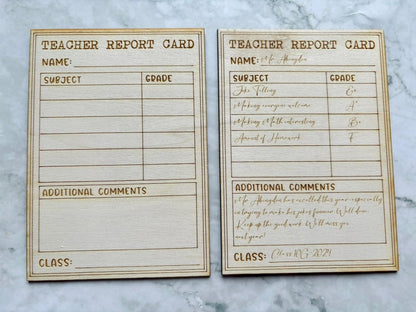 TEACHER REPORT CARD
NAME:
SUBJECT GRADE
ADDITIONAL COMMENTS
CLASS:
TEACHER REPORT CARD
NAME: Mr Abingdon
SUBJECT GRADE
Joke Telling
Making everyone welcome A+
Making Math interesting
Amount of Homework F
ADDITIONAL COMMENTS
Mr Abingdon has excelled this year especially
in trying to make his jokes funnier. Well done.
Keep up the good work. We'll miss you
next year!
CLASS: Class 10G 2024